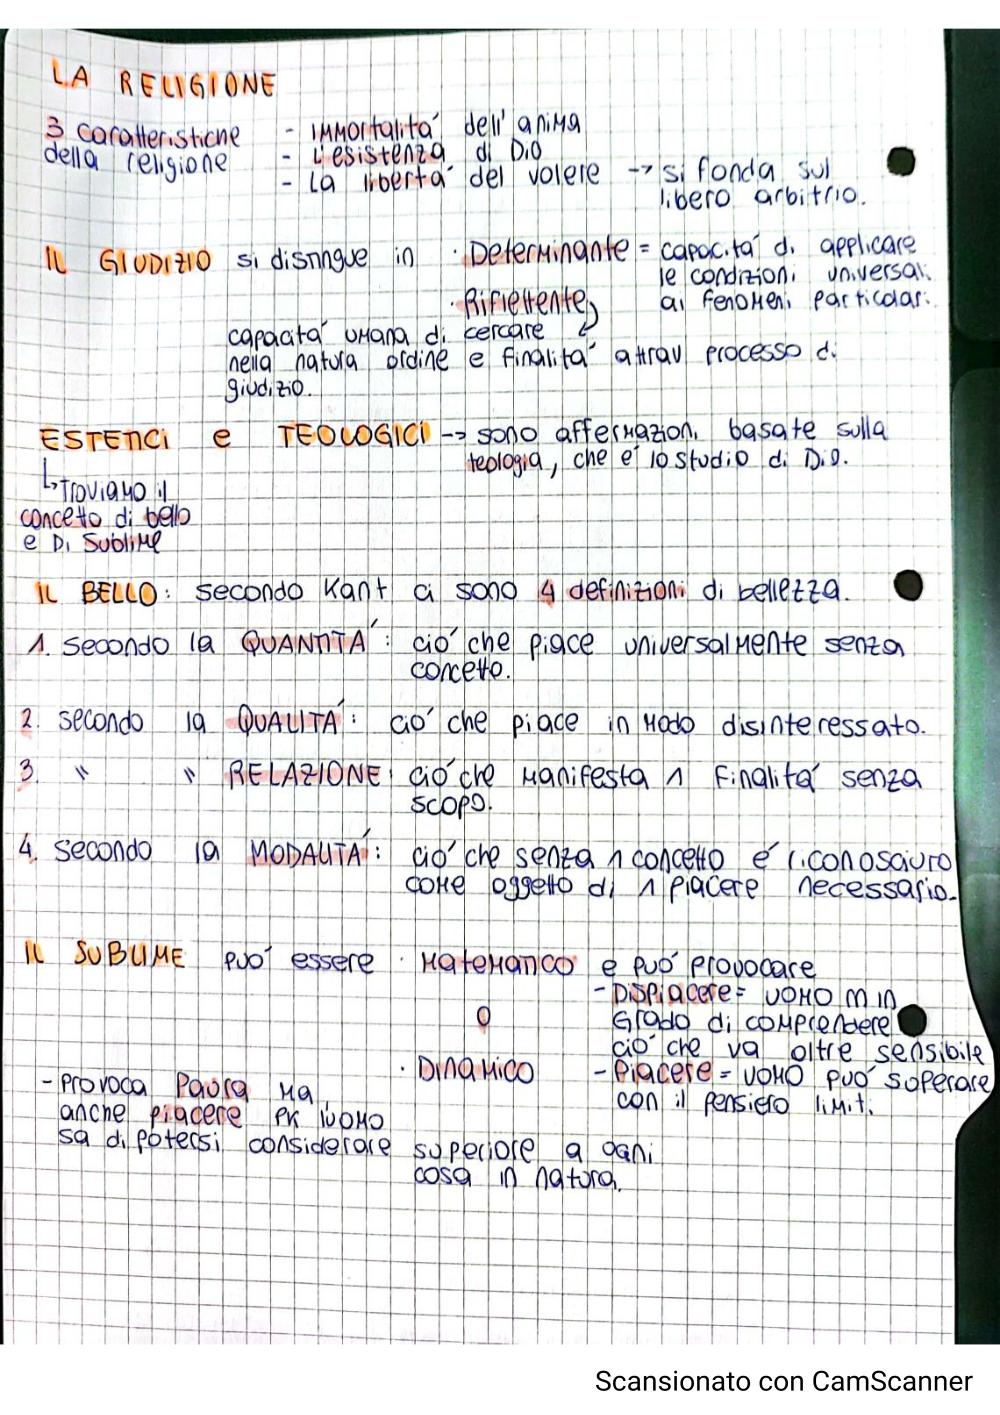 LA RELIGIONE
3 caratteristiche - IMMortalità dell'anima
della religione - L'esistenza di Dio
- La libertà del volere -> si fonda sul
libero arbitrio.
IL GIUDIZIO si distingue in · Determinante = capacità di applicare
le condizioni universali
ai fenomeni particolari.
· Riflettente
capacità umana di cercare
nella natura ordine e finalità attrav processo di
giudizio.
ESTETICI e TEOLOGICI -> sono affermazioni basate sulla
teologia, che è lo studio di Dio.
Troviamo il
concetto di bello
e Di Sublime
IL BELLO: secondo Kant ci sono 4 definizioni di bellezza.
1. secondo la QUANTITÀ: ciò che piace universalmente senza
concetto.
2. secondo la QUALITÀ: ciò che piace in modo disinteressato.
3. " " RELAZIONE: ciò che manifesta 1 finalità senza
scopo.
4. secondo la MODALITÀ: ciò che senza 1 concetto è riconosciuto
come oggetto di 1 piacere necessario.
IL SUBLIME può essere · Matematico e può provocare
- Dispiacere = uomo m in
grado di comprendere
ciò che va oltre sensibile
o
· Dinamico
- Piacere = uomo può superare
con il pensiero limiti.
- Provoca Paura ma
anche piacere pk l'uomo
sa di potersi considerare superiore a ogni
cosa in natura.
Scansionato con CamScanner